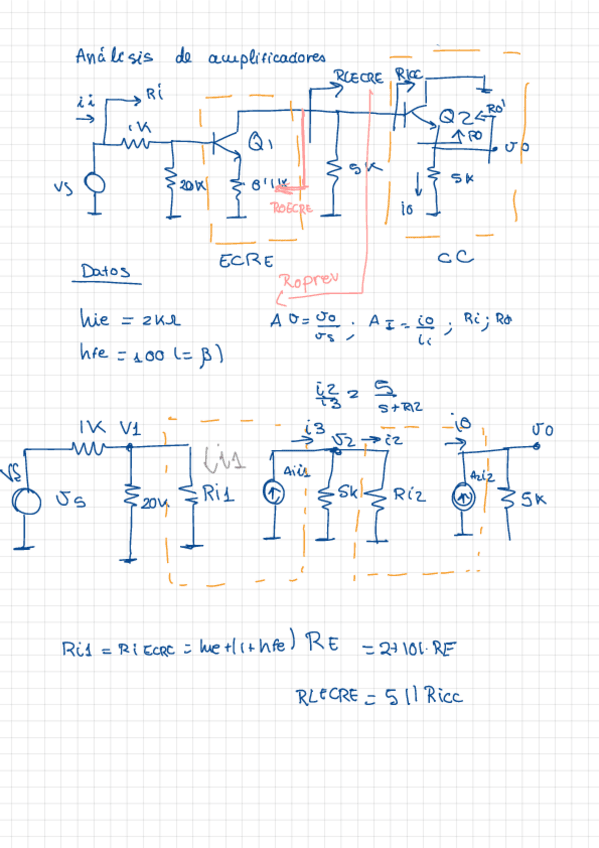 Análisis de amplificadores
RLECRE Ricc
ii Ri
1K Q1 Q2 Ro'
Ro
vo
vs 20K 5K 5K
ROECRE io
ECRE CC
Roprev
Datos
hie = 2KΩ
hfe = 100 (= β)
AV = vo/vs ; AI = io/ii ; Ri ; Ro
i2/i3 = 5/5+Ri2
1K V1 i3 v2 i2 io vo
ii1
vs 20K Ri1 Aii1 5K Ri2 A2i2 5K
Ri1 = Ri ECRE = hie+(1+hfe) RE = 2+101·RE
RLECRE = 5 || Ricc